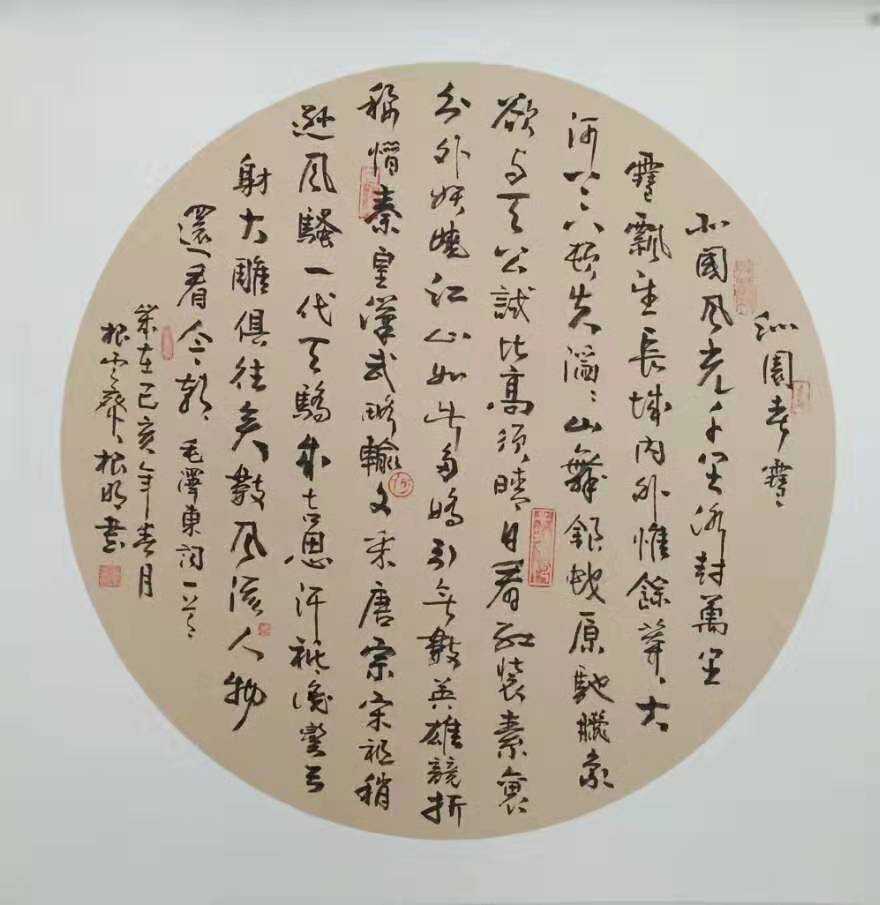 沁園春雪
北國風光千里冰封萬里
雪飄望長城内外惟餘莽、大
河上下頓失滔、山舞銀蛇原馳臘象
欲與天公試比高須晴日看紅裝素裹
分外妖嬈江山如此多嬌引無數英雄競折
腰惜秦皇漢武略輸文采唐宗宋祖稍
遜風騷一代天驕成吉思汗祇識彎弓
射大雕俱往矣數風流人物
還看今朝 毛澤東詞一首
歲在己亥年春月
根雲齋根明書